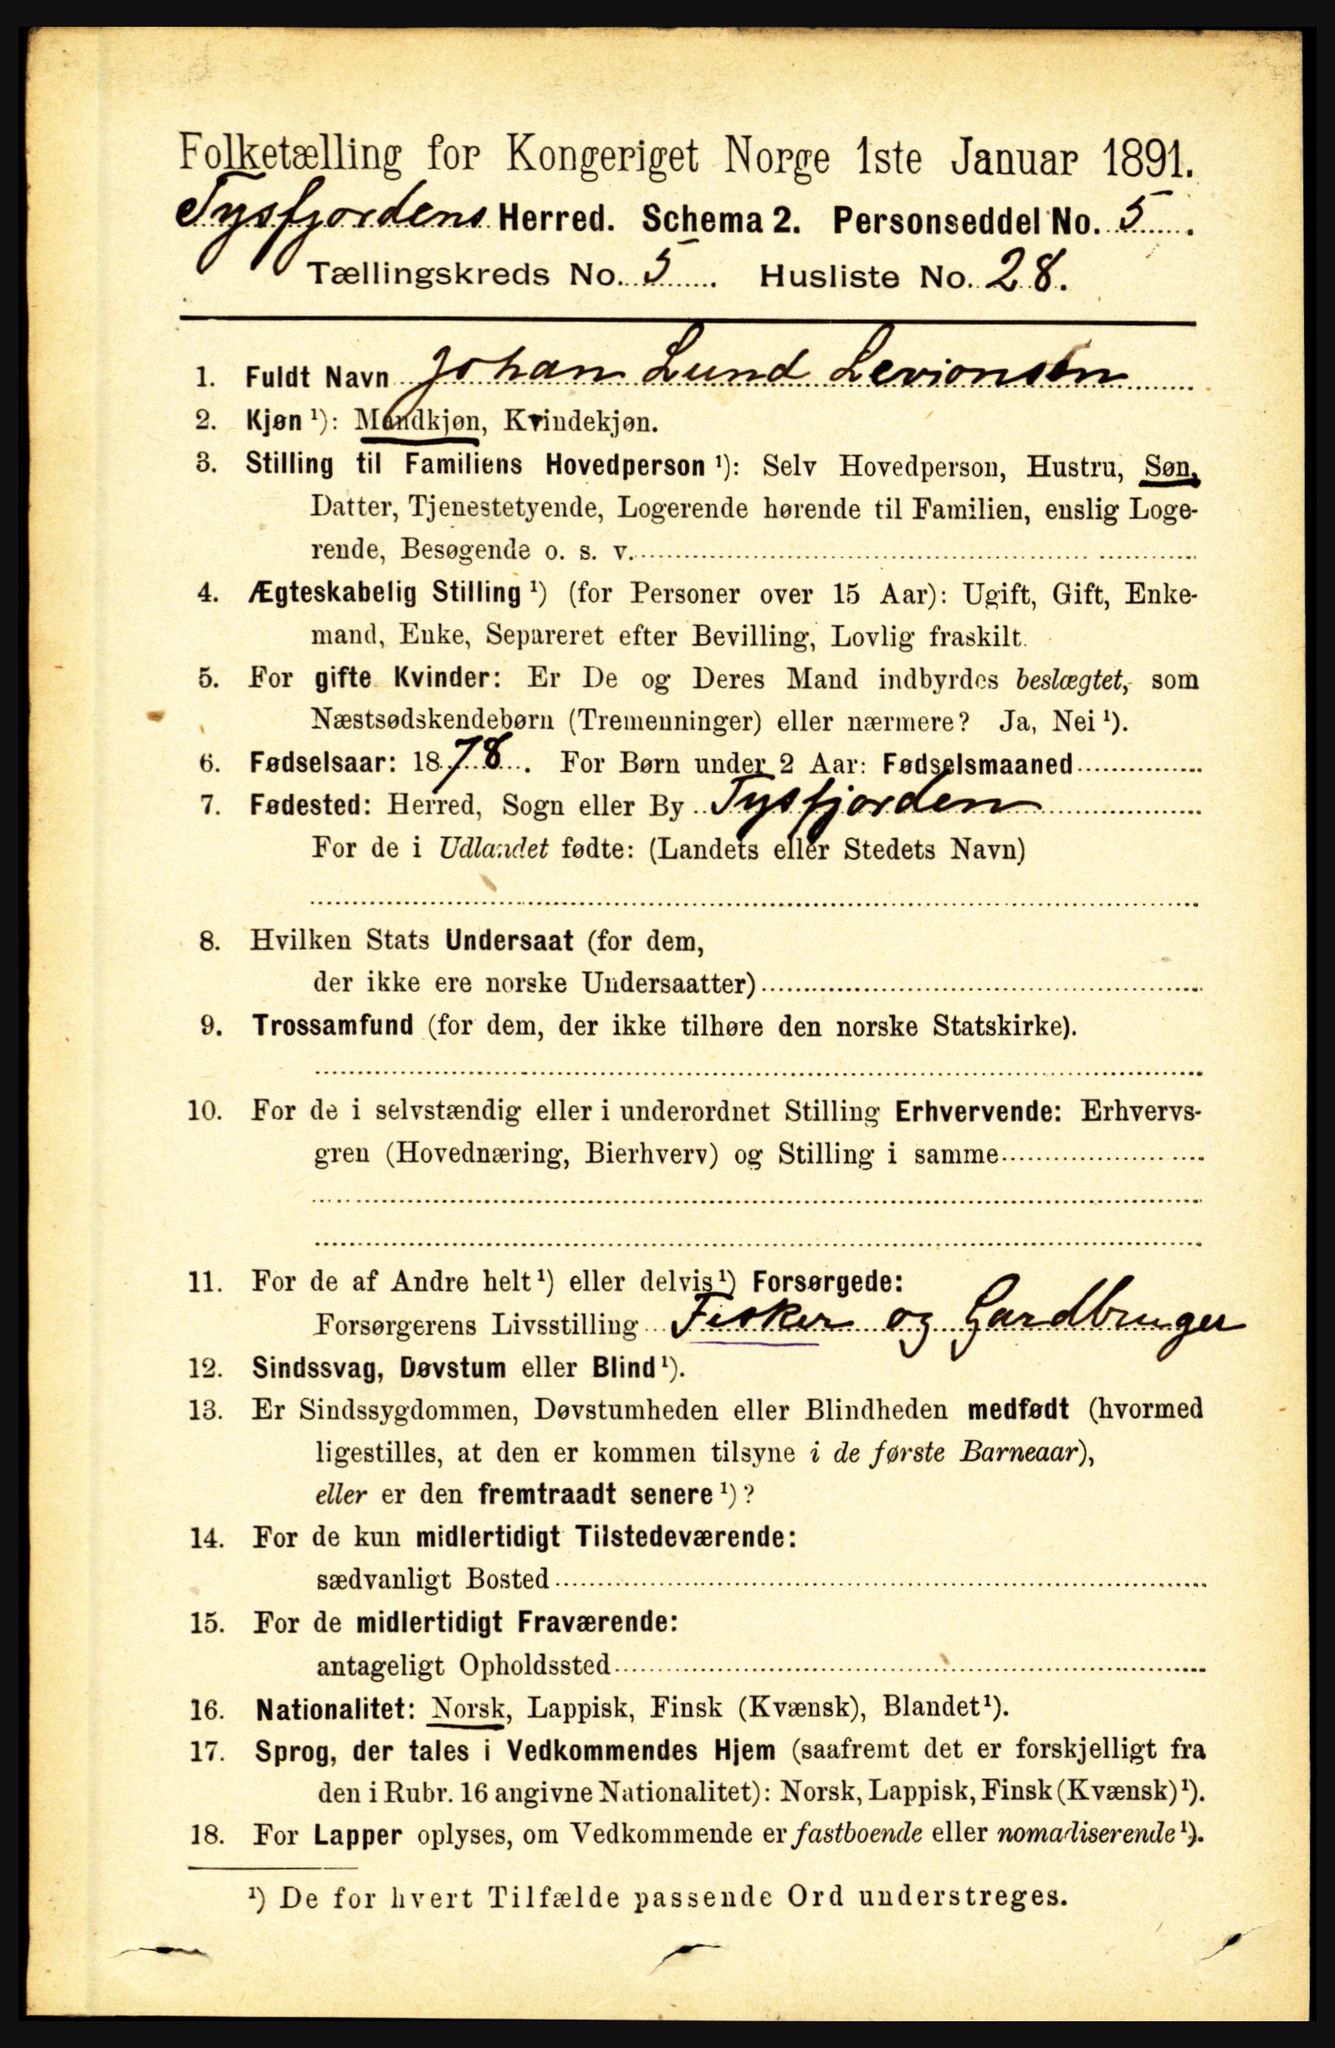 Folketælling for Kongeriget Norge 1ste Januar 1891.
Tysfjordens Herred. Schema 2. Personseddel No. 5.
Tællingskreds No. 5. Husliste No. 28.
1. Fuldt Navn Johan Lund Levionsen
2. Kjøn ¹): Mandkjøn, Kvindekjøn.
3. Stilling til Familiens Hovedperson ¹): Selv Hovedperson, Hustru, Søn,
Datter, Tjenestetyende, Logerende hørende til Familien, enslig Loge-
rende, Besøgende o. s. v.
4. Ægteskabelig Stilling ¹) (for Personer over 15 Aar): Ugift, Gift, Enke-
mand, Enke, Separeret efter Bevilling, Lovlig fraskilt.
5. For gifte Kvinder: Er De og Deres Mand indbyrdes beslægtet, som
Næstsødskendebørn (Tremenninger) eller nærmere? Ja, Nei ¹).
6. Fødselsaar: 1878. For Børn under 2 Aar: Fødselsmaaned
7. Fødested: Herred, Sogn eller By Tysfjorden
For de i Udlandet fødte: (Landets eller Stedets Navn)
8. Hvilken Stats Undersaat (for dem,
der ikke ere norske Undersaatter)
9. Trossamfund (for dem, der ikke tilhøre den norske Statskirke).
10. For de i selvstændig eller i underordnet Stilling Erhvervende: Erhvervs-
gren (Hovednæring, Bierhverv) og Stilling i samme
11. For de af Andre helt ¹) eller delvis ¹) Forsørgede:
Forsørgerens Livsstilling Fisker og Gardbruger
12. Sindssvag, Døvstum eller Blind ¹).
13. Er Sindssygdommen, Døvstumheden eller Blindheden medfødt (hvormed
ligestilles, at den er kommen tilsyne i de første Barneaar),
eller er den fremtraadt senere ¹)?
14. For de kun midlertidigt Tilstedeværende:
sædvanligt Bosted
15. For de midlertidigt Fraværende:
antageligt Opholdssted
16. Nationalitet: Norsk, Lappisk, Finsk (Kvænsk), Blandet ¹).
17. Sprog, der tales i Vedkommendes Hjem (saafremt det er forskjelligt fra
den i Rubr. 16 angivne Nationalitet): Norsk, Lappisk, Finsk (Kvænsk) ¹).
18. For Lapper oplyses, om Vedkommende er fastboende eller nomadiserende ¹).
¹) De for hvert Tilfælde passende Ord understreges.